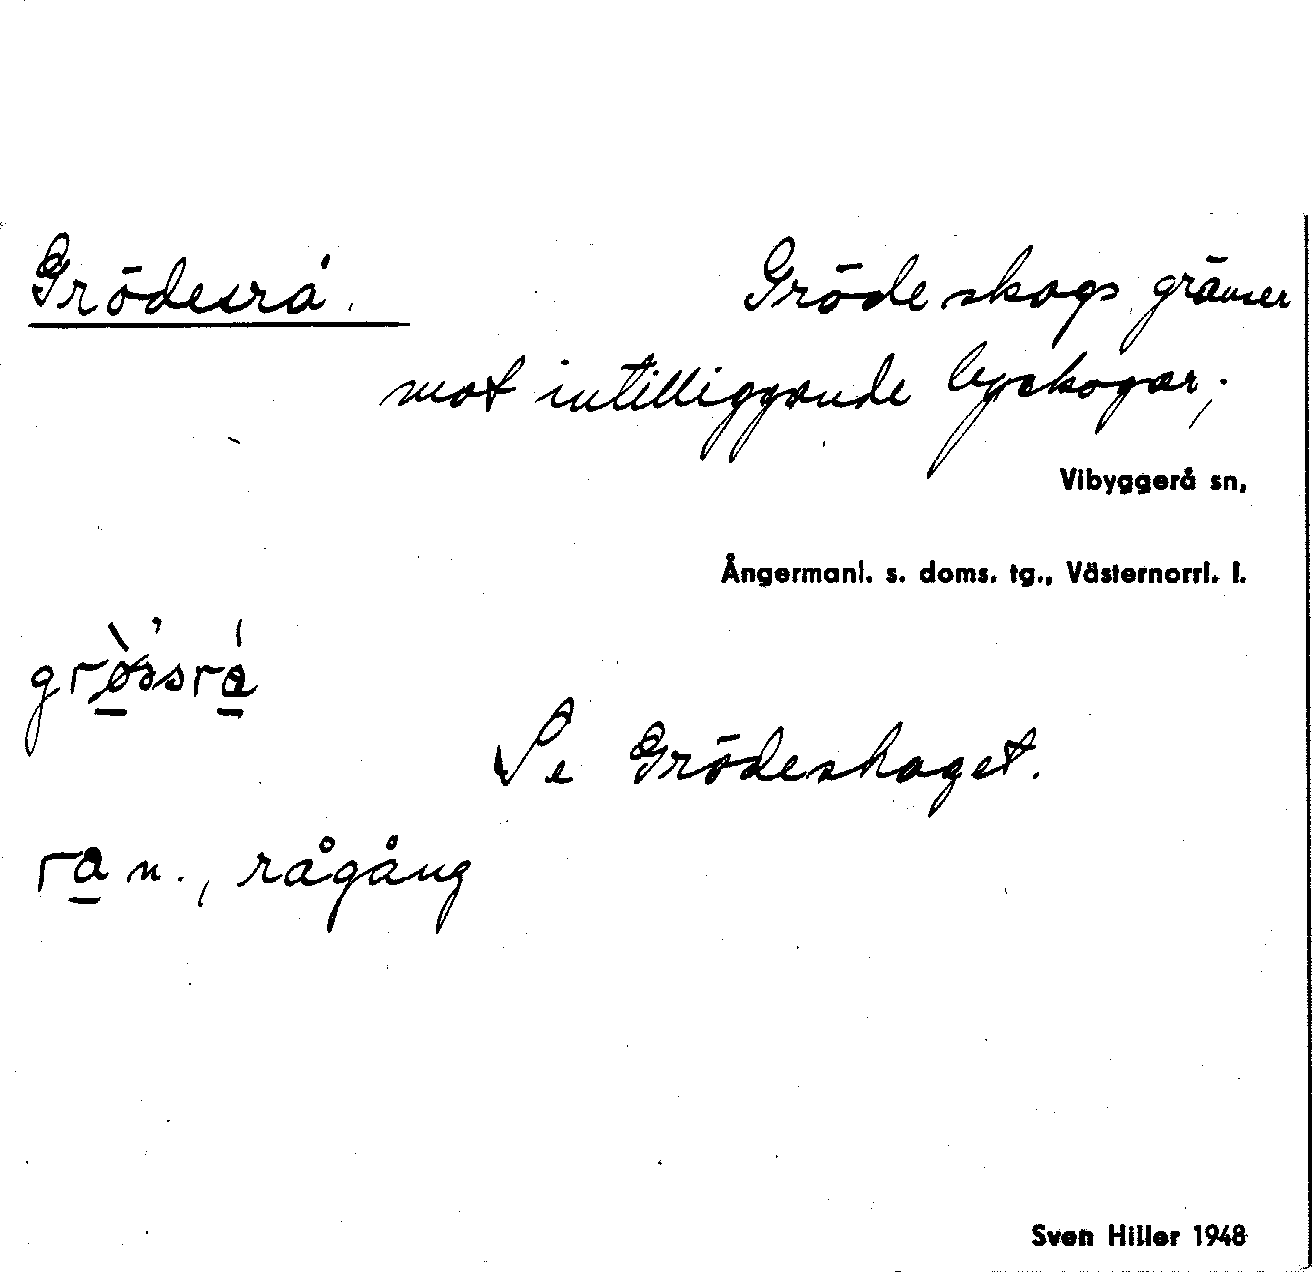 Grödesrå.
Gröde skogs gränser
mot intilliggande byskogar;
Vibyggerå sn,
Ångermanl. s. doms. tg., Västernorrl. l.
Se Grödeskaget.
ra n., rågång
Sven Hiller 1948